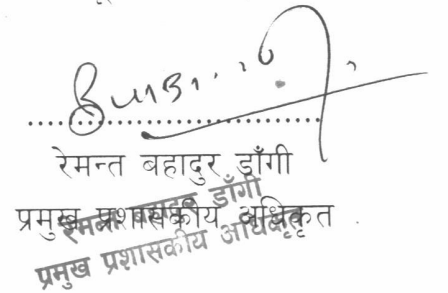 रेमन्त बहादुर डाँगी
प्रमुख प्रशासकीय अधिकृत .
डाँगी
प्रमुख प्रशासकीय अधिकृत